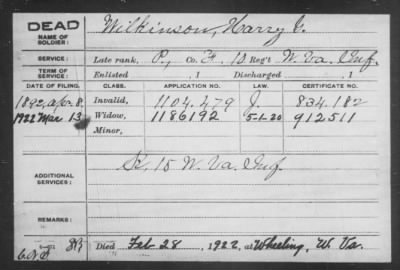 DEAD
NAME OF SOLDIER:
Wilkinson, Harry V.
SERVICE:
Late rank, P., Co. F. 10 Reg't W. Va. Inf.
TERM OF SERVICE:
Enlisted , 1 Discharged , 1
DATE OF FILING. CLASS. APPLICATION NO. LAW. CERTIFICATE NO.
1892, Apr. 8. Invalid, 1104.479 J. 834.182
1922 Mar 13 Widow, 1186192 5-1-20 912511
Minor,
ADDITIONAL SERVICES:
K, 15 W. Va. Inf.
REMARKS:
Died Feb 28, 1922, at Wheeling, W. Va.